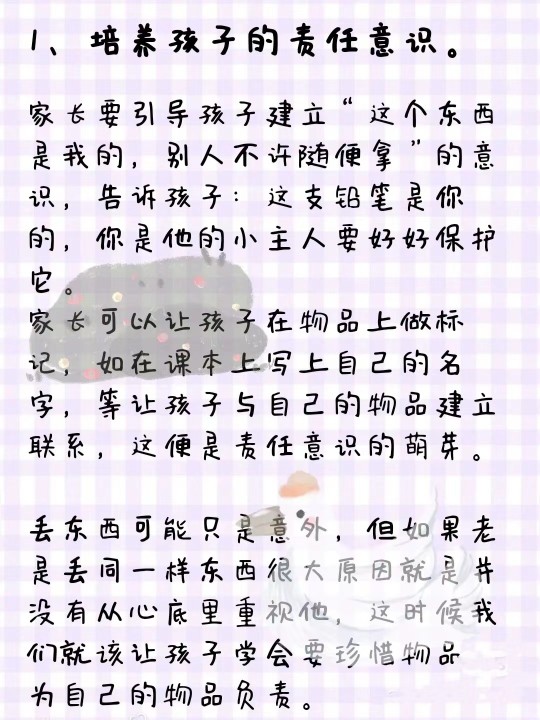 1、培养孩子的责任意识。
家长要引导孩子建立“这个东西
是我的，别人不许随便拿”的意
识，告诉孩子：这支铅笔是你
的，你是他的小主人要好好保护
它。
家长可以让孩子在物品上做标
记，如在课本上写上自己的名
字，等让孩子与自己的物品建立
联系，这便是责任意识的萌芽。
丢东西可能只是意外，但如果老
是丢同一样东西很大原因就是并
没有从心底里重视他，这时候我
们就该让孩子学会要珍惜物品
为自己的物品负责。